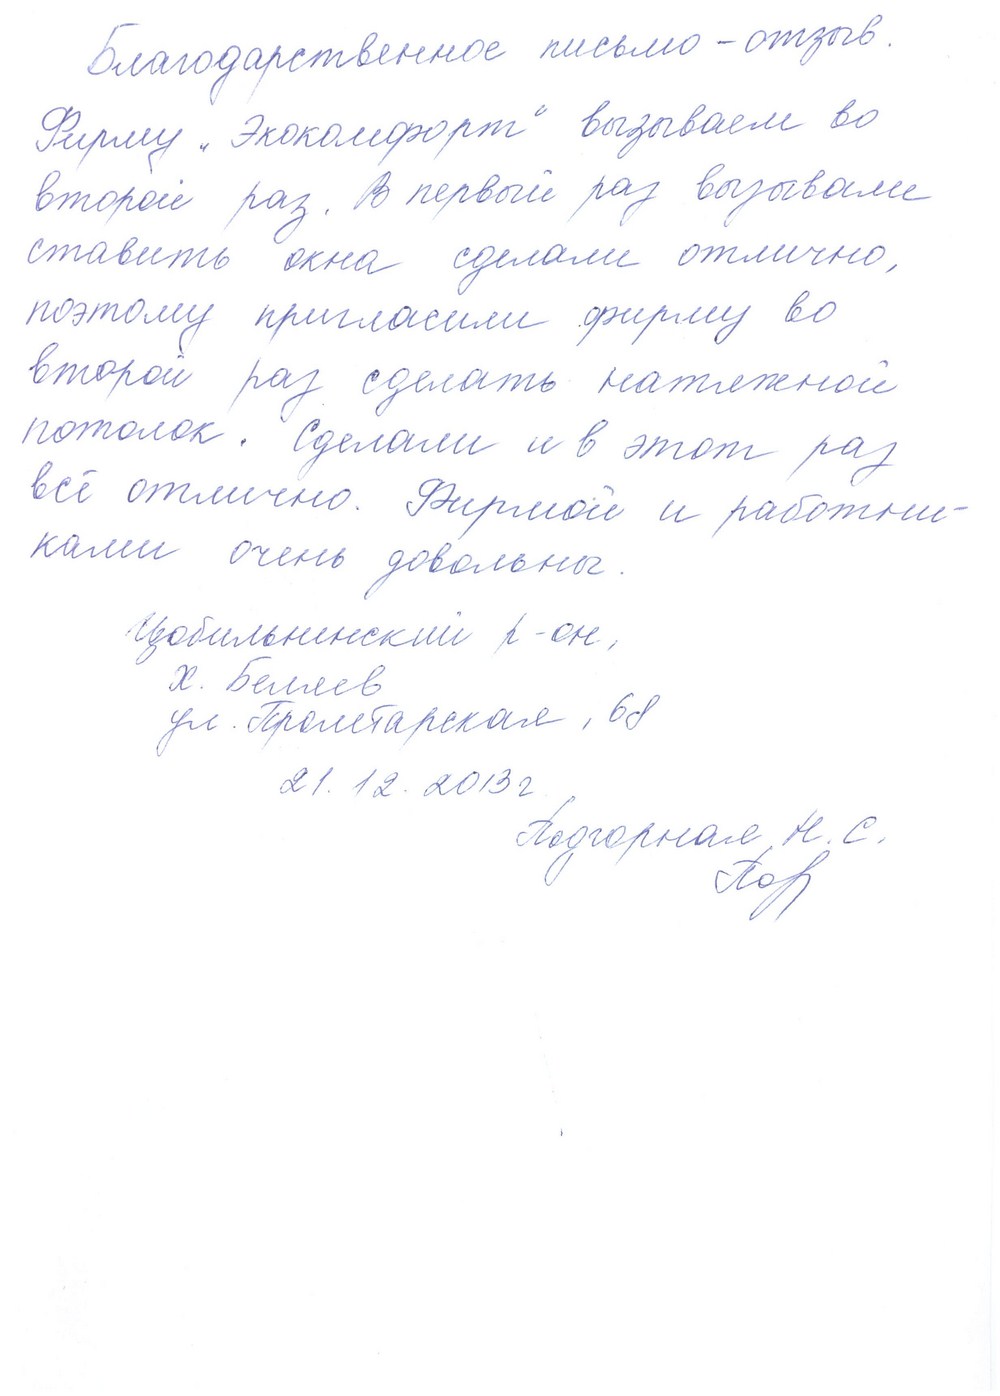 Благодарственное письмо - отзыв.
Фирму „Экокомфорт“ вызываем во
второй раз. В первый раз вызывали
ставить окна сделали отлично,
поэтому пригласили фирму во
второй раз сделать натяжной
потолок. Сделали и в этот раз
всё отлично. Фирмой и работни-
ками очень довольны.
Изобильненский р-он,
х. Беляев
ул. Пролетарская, 68
21.12.2013 г.
Подгорная Н. С.